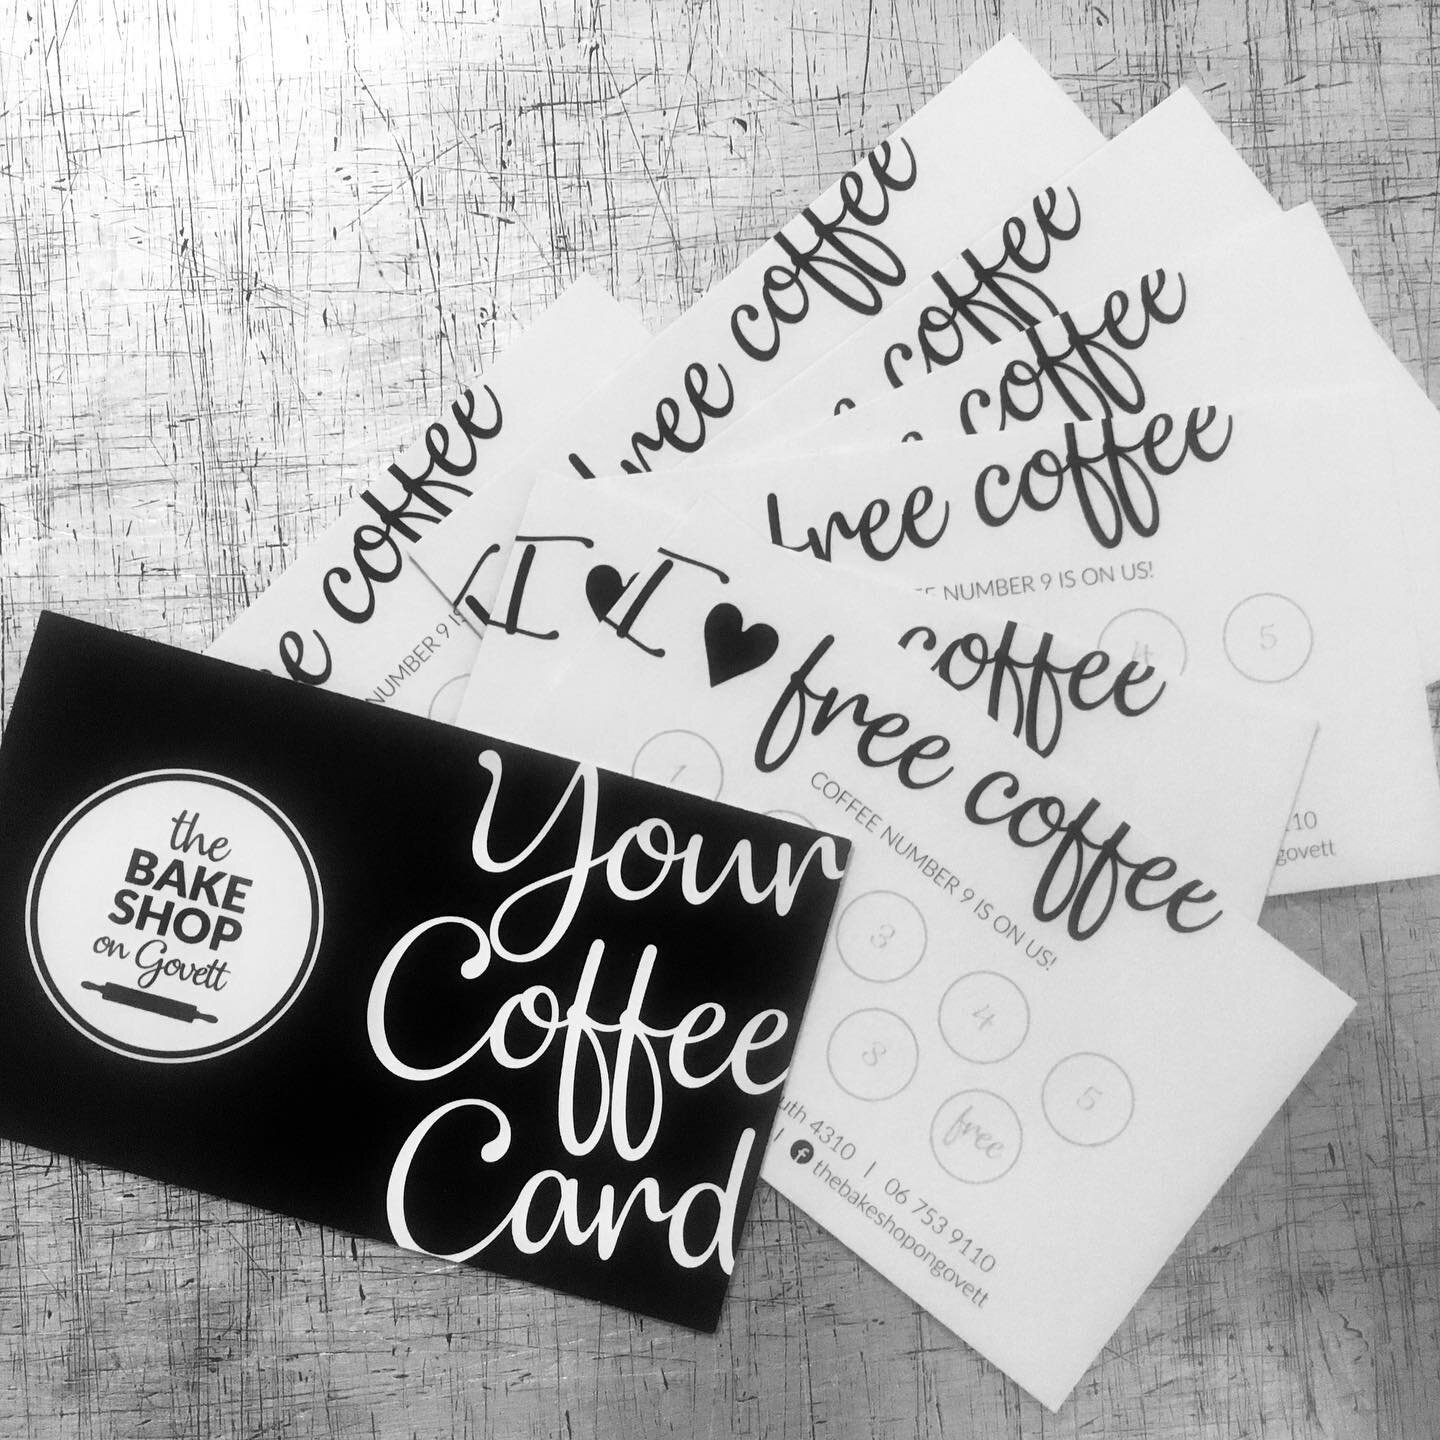 coffee
free coffee
coffee
coffee
free coffee
NUMBER 9 IS
NUMBER 9 IS ON US!
5
I ♥
coffee
I ♥ free coffee
COFFEE NUMBER 9 IS ON US!
1
3
4
5
8
free
4310 | 06 753 9110
thebakeshopongovett
10
govett
the
BAKE
SHOP
on Govett
Your
Coffee
Card